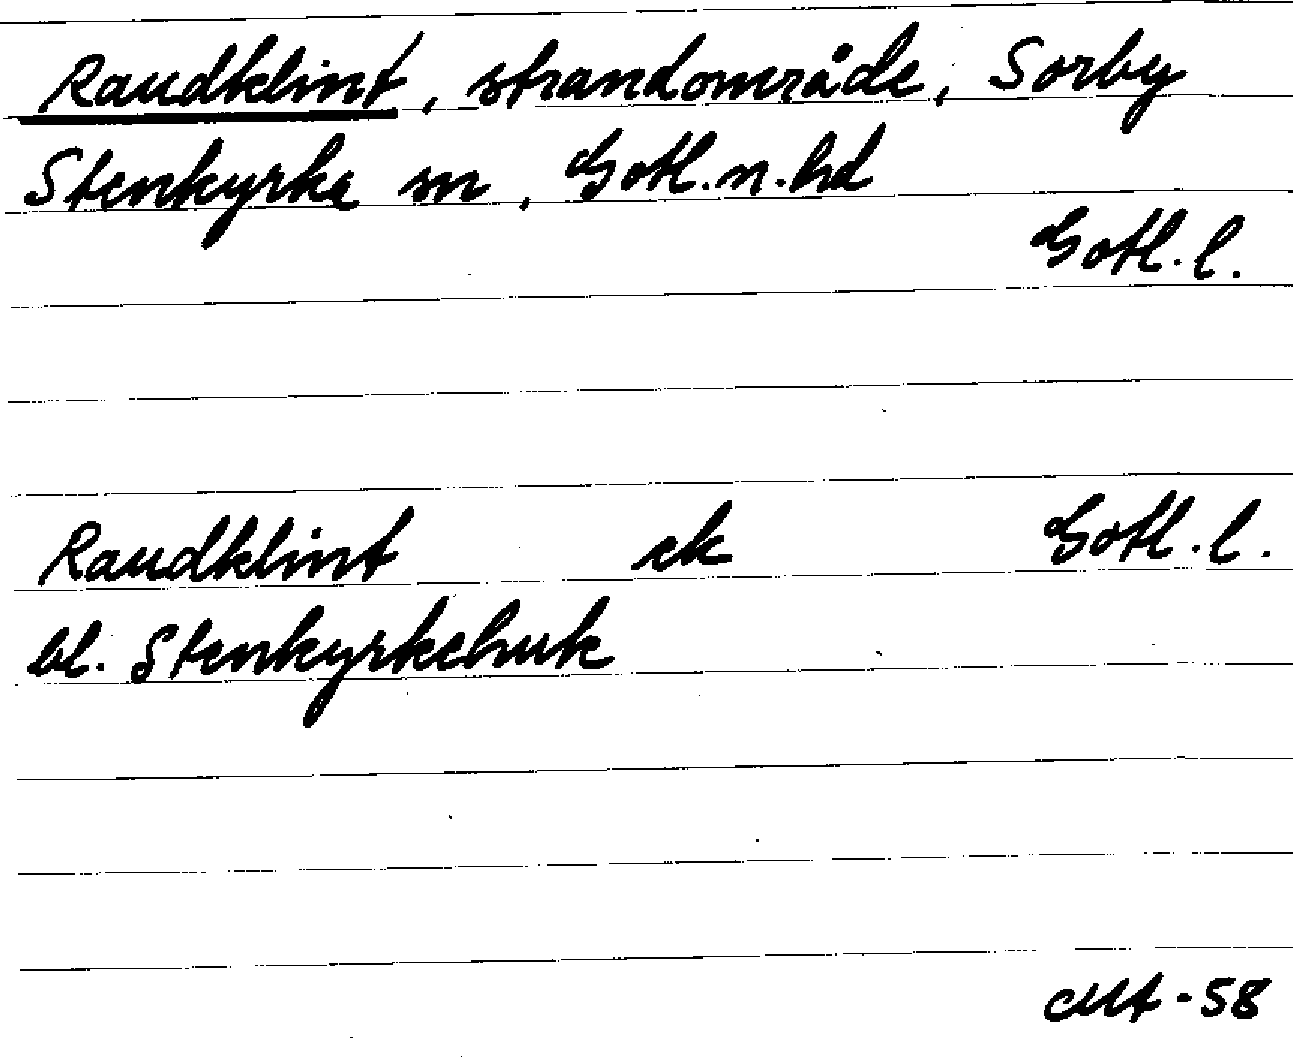 Raudklint, strandområde, Sorby
Stenkyrka sn, Gotl.n.hd
Gotl.l.
Raudklint ek Gotl.l.
bl. Stenkyrkehuk
-58